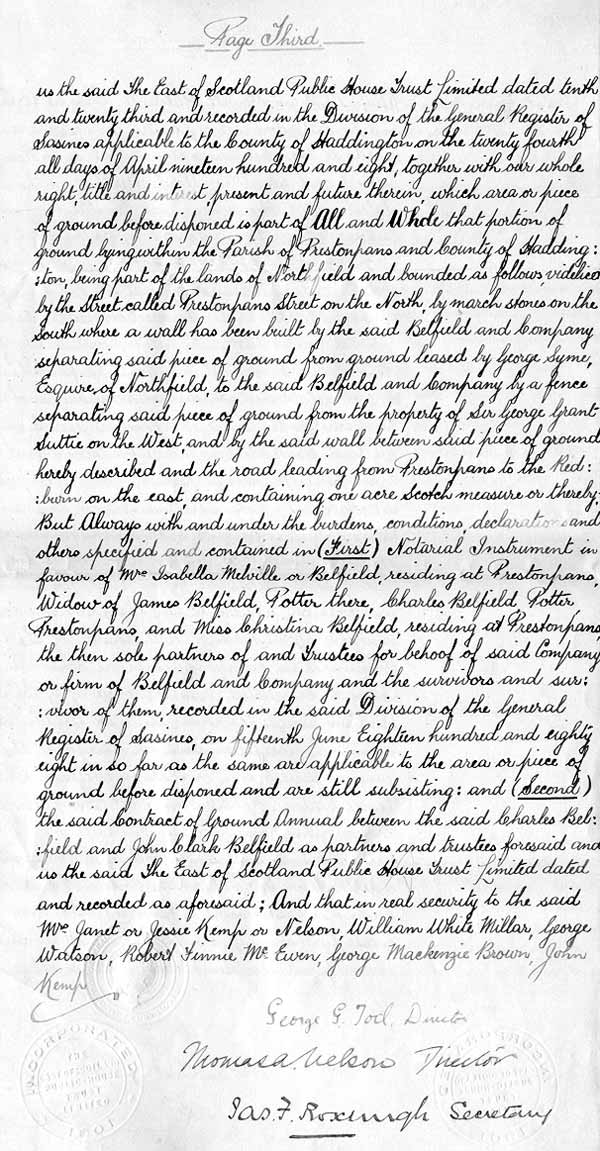 Page Third
us the said The East of Scotland Public House Trust Limited dated tenth
and twenty third and recorded in the Division of the General Register of
Sasines applicable to the County of Haddington on the twenty fourth
all days of April nineteen hundred and eight, together with our whole
right, title and interest, present and future therein, which area or piece
of ground before disponed is part of All and Whole that portion of
ground lying within the Parish of Prestonpans and County of Hadding:
:ton, being part of the lands of Northfield and bounded as follows, videlicet
by the Street called Prestonpans Street on the North, by march stones on the
South where a wall has been built by the said Belfield and Company
separating said piece of ground from ground leased by George Syme,
Esquire, of Northfield, to the said Belfield and Company by a fence
separating said piece of ground from the property of Sir George Grant
Suttie on the West, and by the said wall between said piece of ground
hereby described and the road leading from Prestonpans to the Red:
:burn on the east, and containing one acre Scotch measure or thereby;
But Always with and under the burdens, conditions, declarations and
others specified and contained in (First) Notarial Instrument in
favour of Mrs Isabella Melville or Belfield, residing at Prestonpans,
Widow of James Belfield, Potter there, Charles Belfield Potter,
Prestonpans, and Miss Christina Belfield, residing at Prestonpans
the then sole partners of and Trustees for behoof of said Company
or firm of Belfield and Company and the survivors and sur:
:vivor of them, recorded in the said Division of the General
Register of Sasines, on fifteenth June Eighteen hundred and eighty
eight in so far as the same are applicable to the area or piece of
ground before disponed and are still subsisting: and (Second)
the said Contract of Ground Annual between the said Charles Bel:
:field and John Clark Belfield as partners and trustees foresaid and
us the said The East of Scotland Public House Trust Limited dated
and recorded as aforesaid; And that in real security to the said
Mrs Janet or Jessie Kemp or Nelson, William White Millar, George
Watson, Robert Finnie McEwen, George Mackenzie Brown, John
Kemp
George G. Tod, Director
Thomas A. Nelson Director
Jas. F. Roxburgh Secretary
INCORPORATED
1901